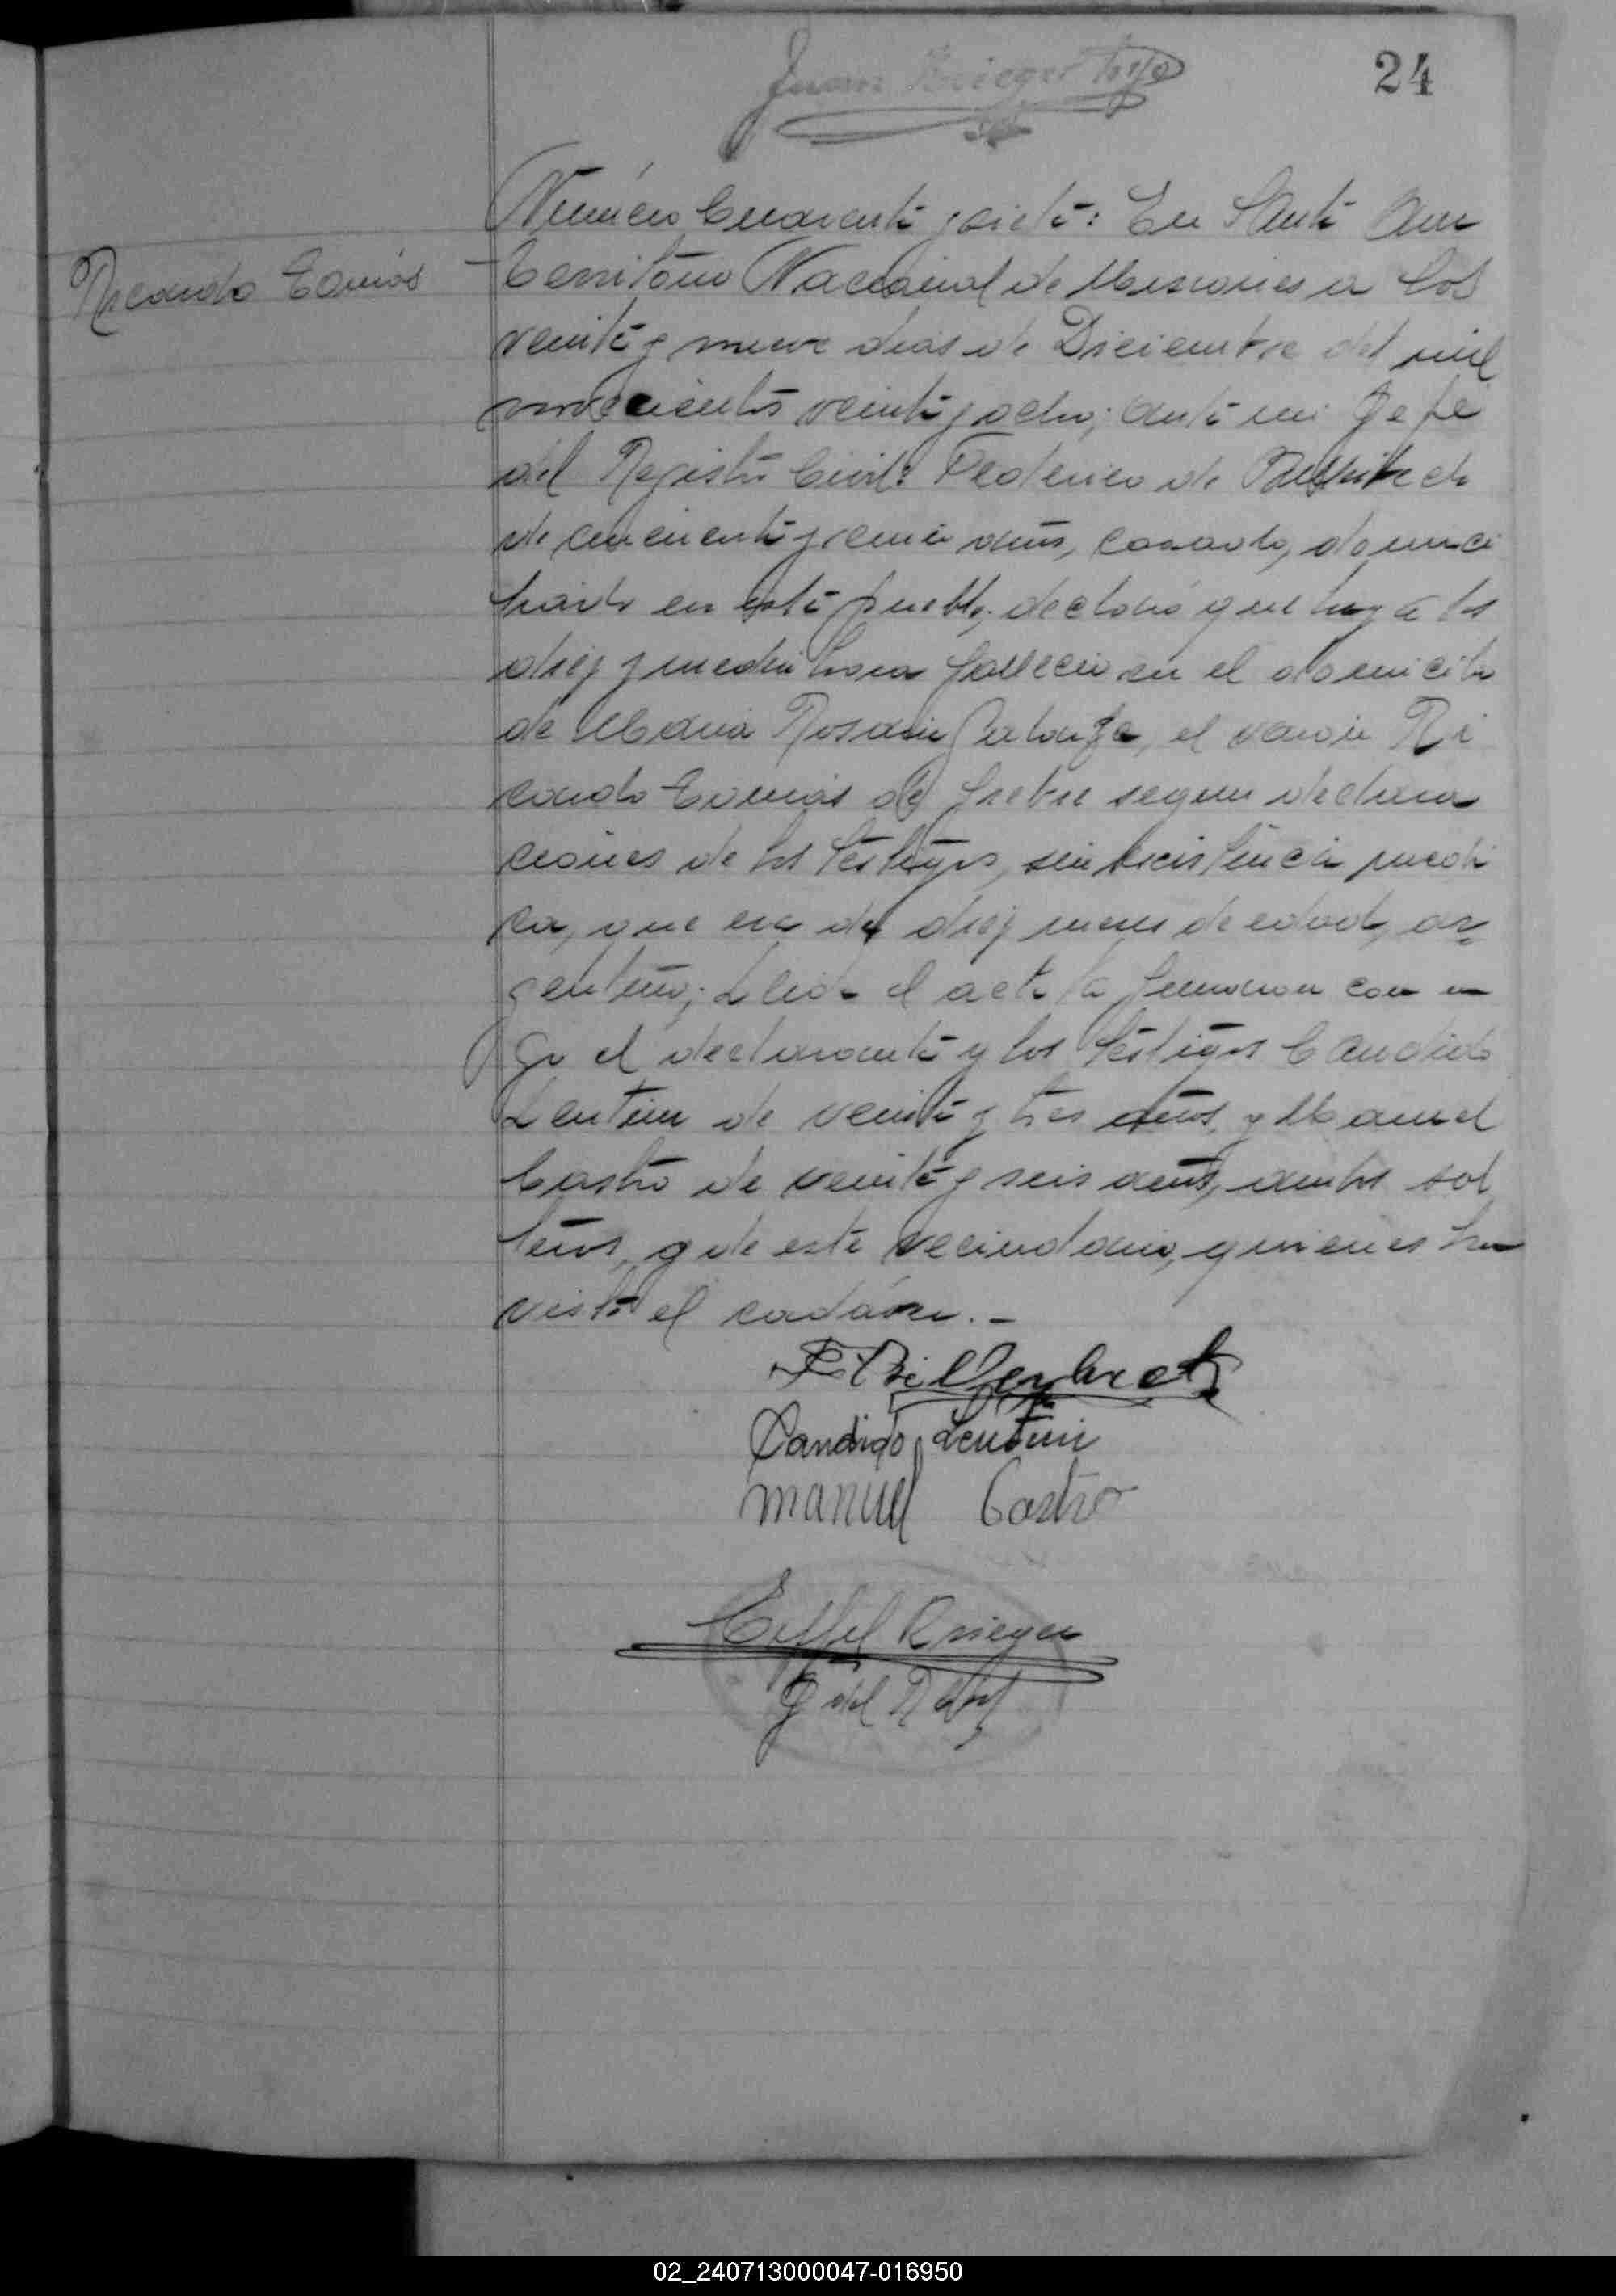 Juan Krieger hijo
24
Número Cuarenta y siete: En Santa Ana
Ricardo Tomás
Territorio Nacional de Misiones a los
veinte y nueve dias de Diciembre del mil
novecientos veinte y ocho; ante mi Gefe
del Registro Civil: Federico de
de cincuenta y años, casado, domici
liado en este pueblo, declaró que hoy a las
diez y media hora fallecio en el domicilio
de Maria Rosario, el varón Ri
cardo Tomás de fiebre segun declara
ciones de los testigos, sin asistencia medi
ca, que era de diez meses de edad, ar
gentino; Leida el acta la firmaron con mi
go el declarante y los testigos Candido
Lentini de veinte y tres años, y Manuel
Castro de veinte y seis años, ambos sol
teros, y de este vecindario, quienes han
visto el cadáver.-
Candido Lentini
manuel Castro
Eiffel Krieger
G del R Civil
02_240713000047-016950